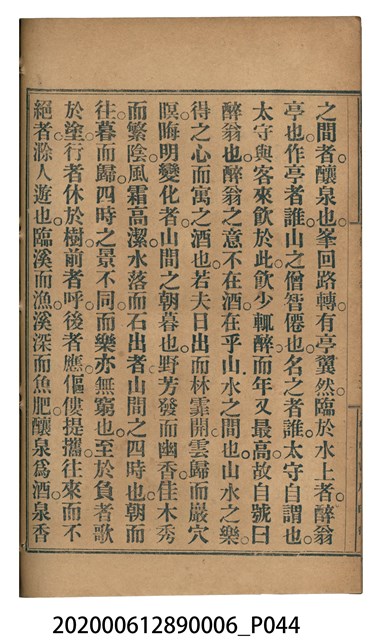 之間者釀泉也峯回路轉有亭翼然臨於水上者醉翁
亭也作亭者誰山之僧智僊也名之者誰太守自謂也
太守與客來飲於此飲少輒醉而年又最高故自號曰
醉翁也醉翁之意不在酒在乎山水之間也山水之樂
得之心而寓之酒也若夫日出而林霏開雲歸而巖穴
暝晦明變化者山間之朝暮也野芳發而幽香佳木秀
而繁陰風霜高潔水落而石出者山間之四時也朝而
往暮而歸四時之景不同而樂亦無窮也至於負者歌
於塗行者休於樹前者呼後者應傴僂提攜往來而不
絕者滁人遊也臨溪而漁溪深而魚肥釀泉爲酒泉香
202000612890006_P044